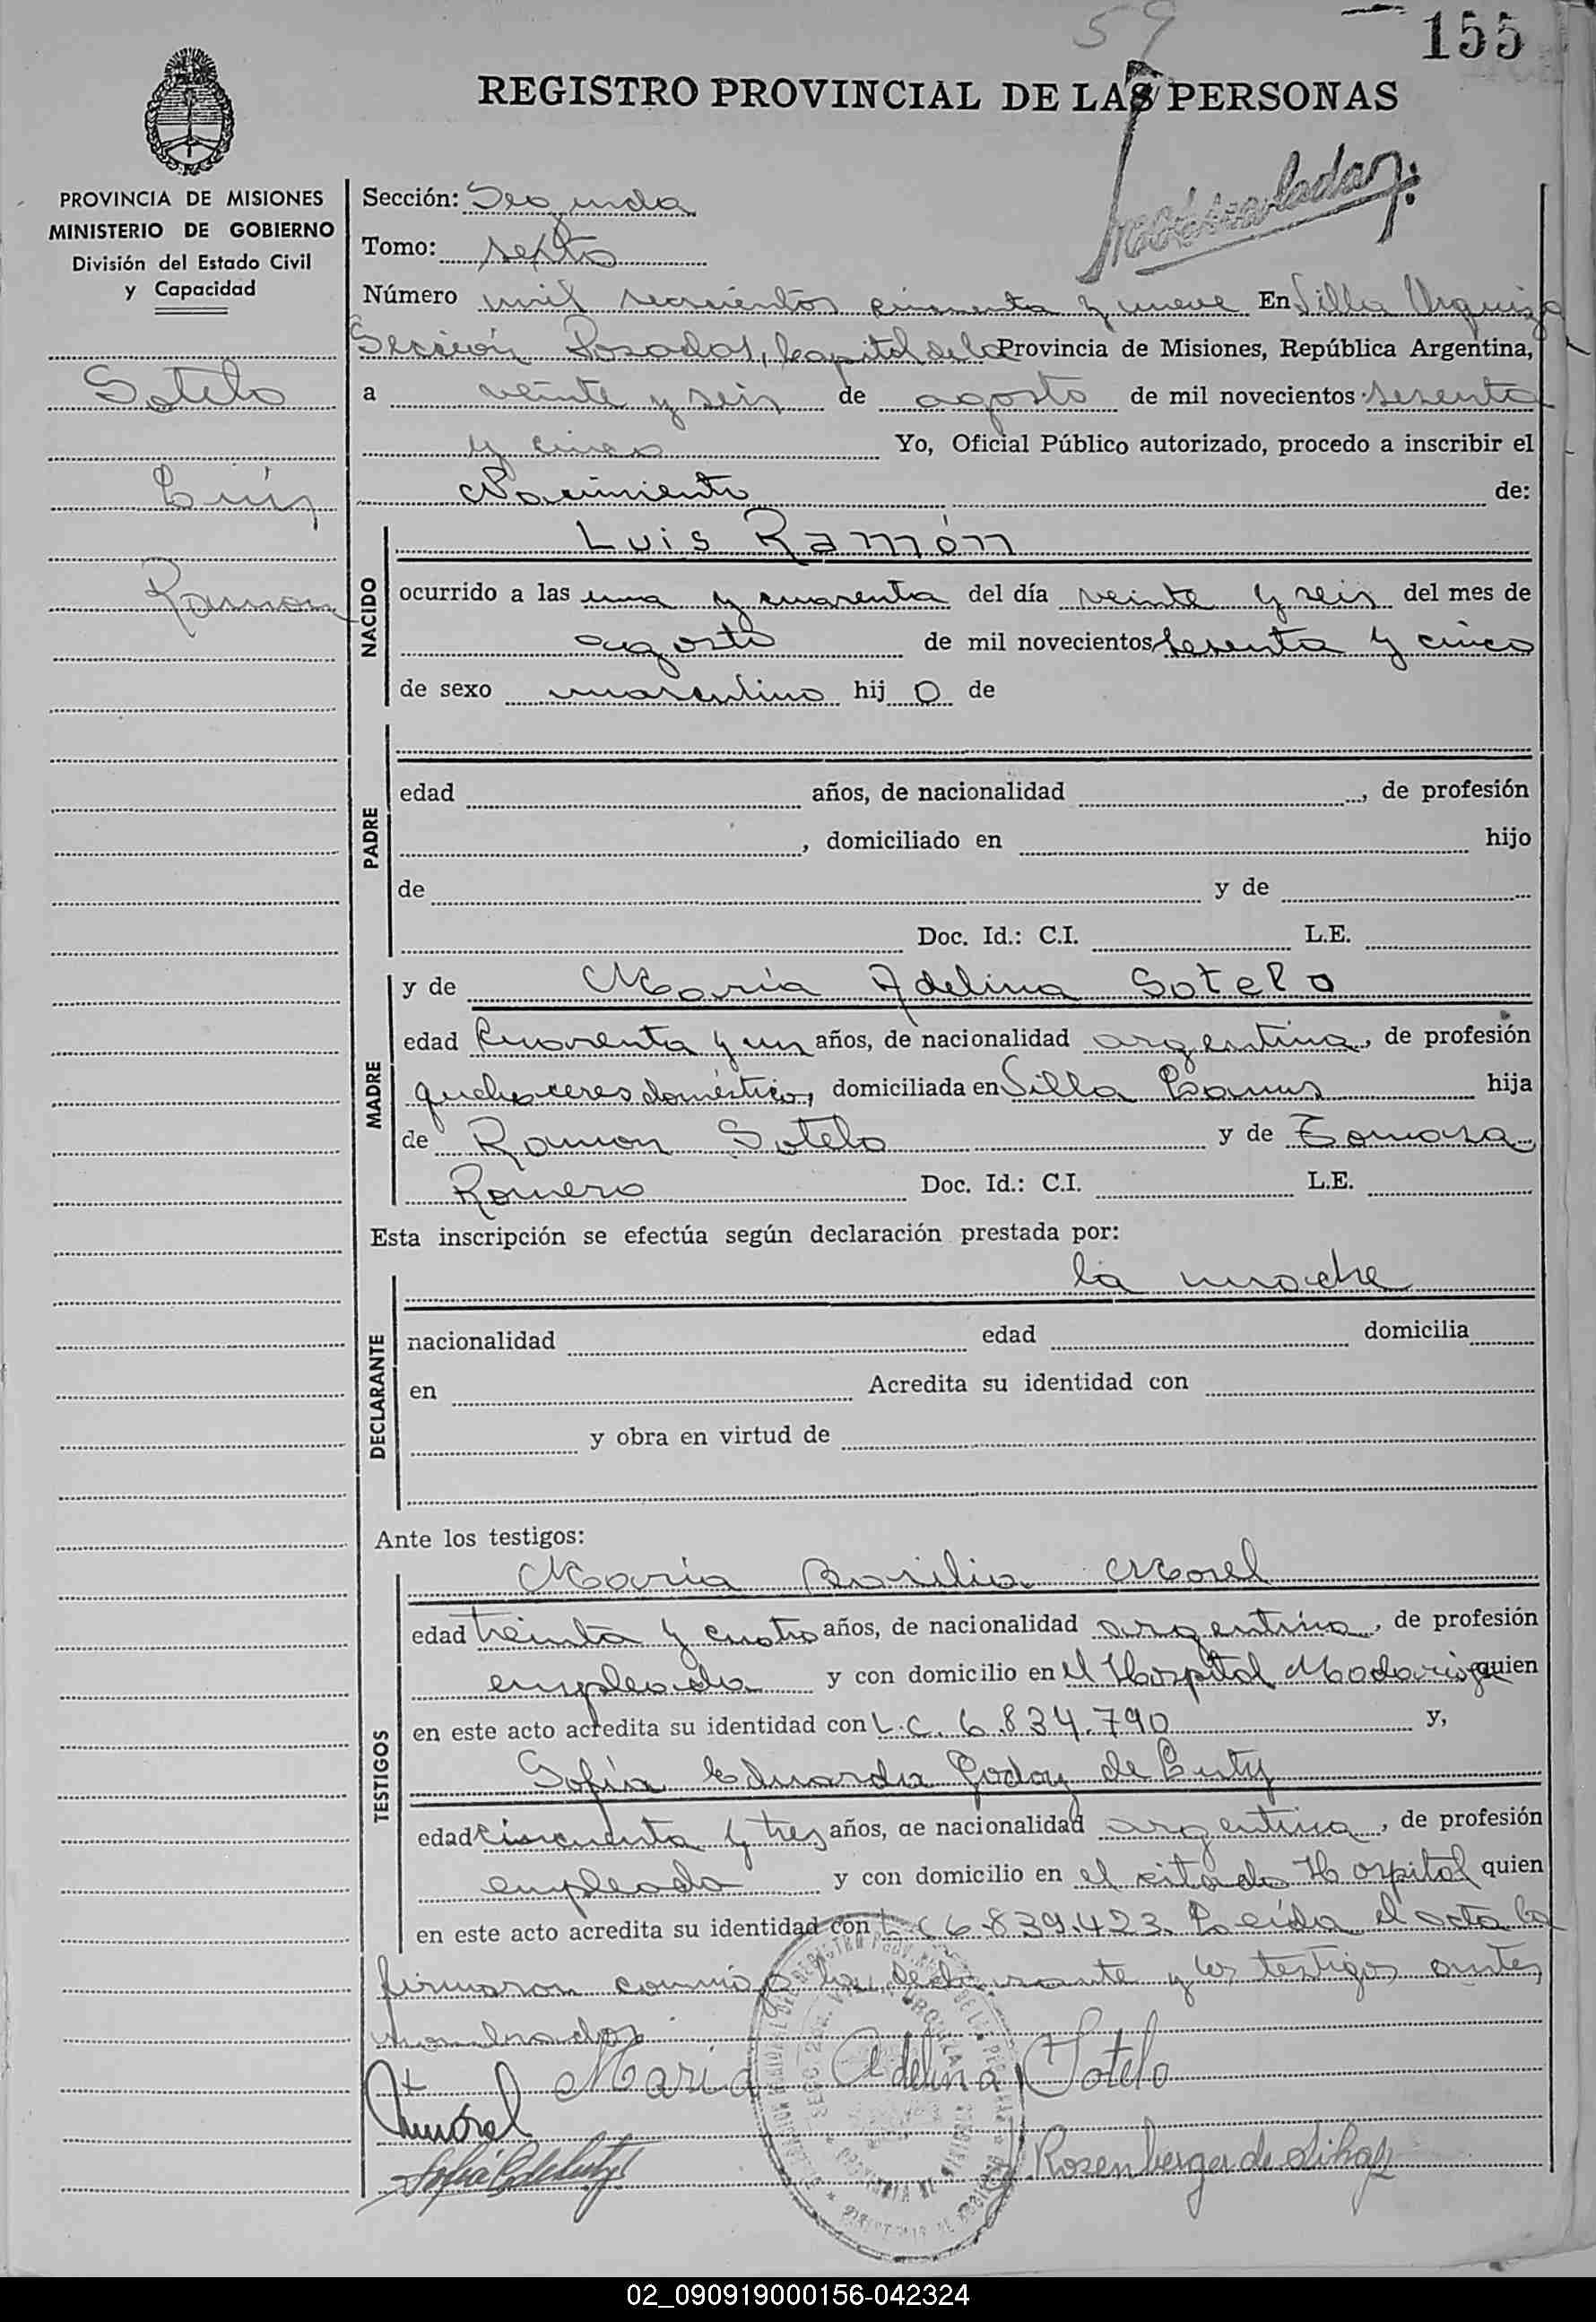 59
155
REGISTRO PROVINCIAL DE LAS PERSONAS
PROVINCIA DE MISIONES
MINISTERIO DE GOBIERNO
División del Estado Civil
y Capacidad
Sotelo
Luis
Ramon
Sección: Segunda
Tomo: sexto
Número mil seiscientos cincuenta y nueve En Villa Urquiza
Sección Posadas, Capital de la Provincia de Misiones, República Argentina,
a veinte y seis de agosto de mil novecientos sesenta
y cinco Yo, Oficial Público autorizado, procedo a inscribir el
Nacimiento de:
NACIDO
Luis Ramón
ocurrido a las una y cuarenta del día veinte y seis del mes de
agosto de mil novecientos sesenta y cinco
de sexo masculino hijo de
PADRE
edad años, de nacionalidad , de profesión
, domiciliado en hijo
de y de
Doc. Id.: C.I. L.E.
MADRE
y de María Adelina Sotelo
edad Cuarenta y un años, de nacionalidad argentina, de profesión
quehaceres domésticos, domiciliada en Villa hija
de Ramon Sotelo y de Tomasa
Romero Doc. Id.: C.I. L.E.
Esta inscripción se efectúa según declaración prestada por:
la madre
DECLARANTE
nacionalidad edad domicilia
en Acredita su identidad con
y obra en virtud de
Ante los testigos:
TESTIGOS
María Basilia Morel
edad treinta y cuatro años, de nacionalidad argentina, de profesión
empleada y con domicilio en el Hospital Madariaga quien
en este acto acredita su identidad con L.C. 6.834.790 y,
Sofía Eduarda Godoy de
edad cincuenta y tres años, de nacionalidad argentina, de profesión
empleada y con domicilio en el citado Hospital quien
en este acto acredita su identidad con L.C 6.839.423. Leída el acta la
firmaron conmigo la declarante y los testigos antes
nombrados
Maria Adelina Sotelo
Morel
Rosenberger de
02_090919000156-042324